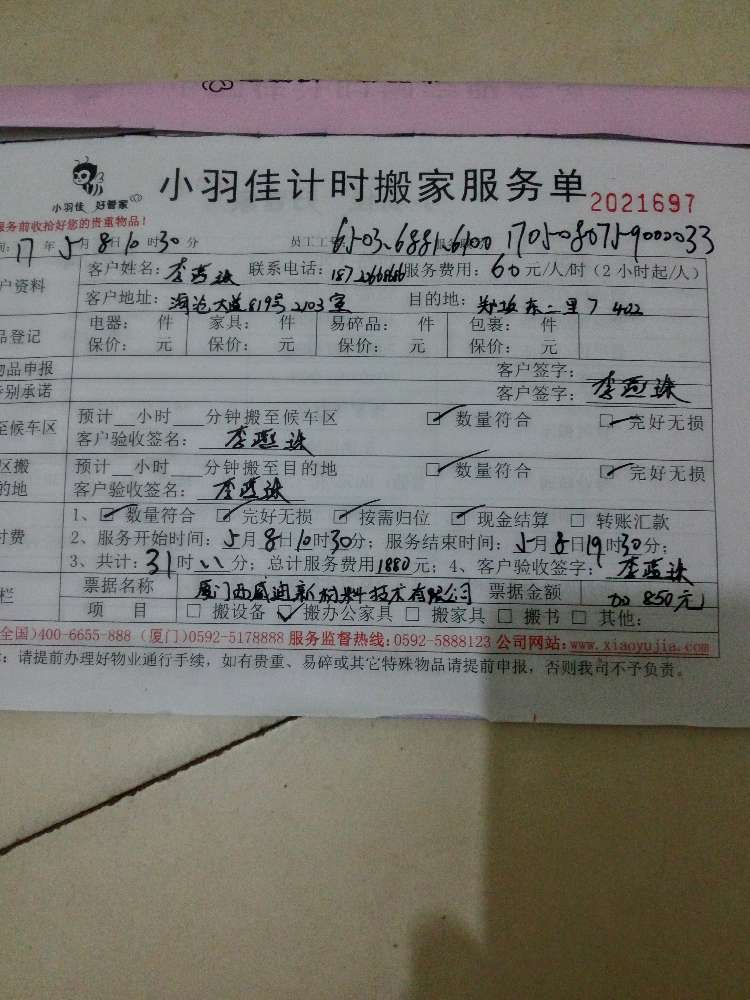 小羽佳 好管家
小羽佳计时搬家服务单 2021697
服务前收拾好您的贵重物品！
间：17年5月8日10时30分 员工工号 1705080759000033
户资料 客户姓名： 联系电话： 服务费用：60元/人/时（2小时起/人）
客户地址：海沧大道819号2103室 目的地： 东二里7 402
品登记 电器： 件 家具： 件 易碎品： 件 包裹： 件
保价： 元 保价： 元 保价： 元 保价： 元
物品申报 客户签字：
特别承诺 客户签字：
至候车区 预计__小时__分钟搬至候车区 ☑ 数量符合 ☑ 完好无损
客户验收签名：
区搬 预计__小时__分钟搬至目的地 ☑ 数量符合 ☑ 完好无损
的地 客户验收签名：
1、☑ 数量符合 ☑ 完好无损 ☑ 按需归位 ☑ 现金结算 □ 转账汇款
付费 2、服务开始时间：5月8日10时30分；服务结束时间：5月8日19时30分；
3、共计：31时 分；总计服务费用1880元；4、客户验收签字：
栏 票据名称 厦门西威迪新材料技术有限公司 票据金额 加850元
项 目 □ 搬设备 ☑ 搬办公家具 □ 搬家具 □ 搬书 □ 其他：
全国)400-6655-888 (厦门)0592-5178888 服务监督热线：0592-5888123 公司网站：www.xiaoyujia.com
：请提前办理好物业通行手续，如有贵重、易碎或其它特殊物品请提前申报，否则我司不予负责。